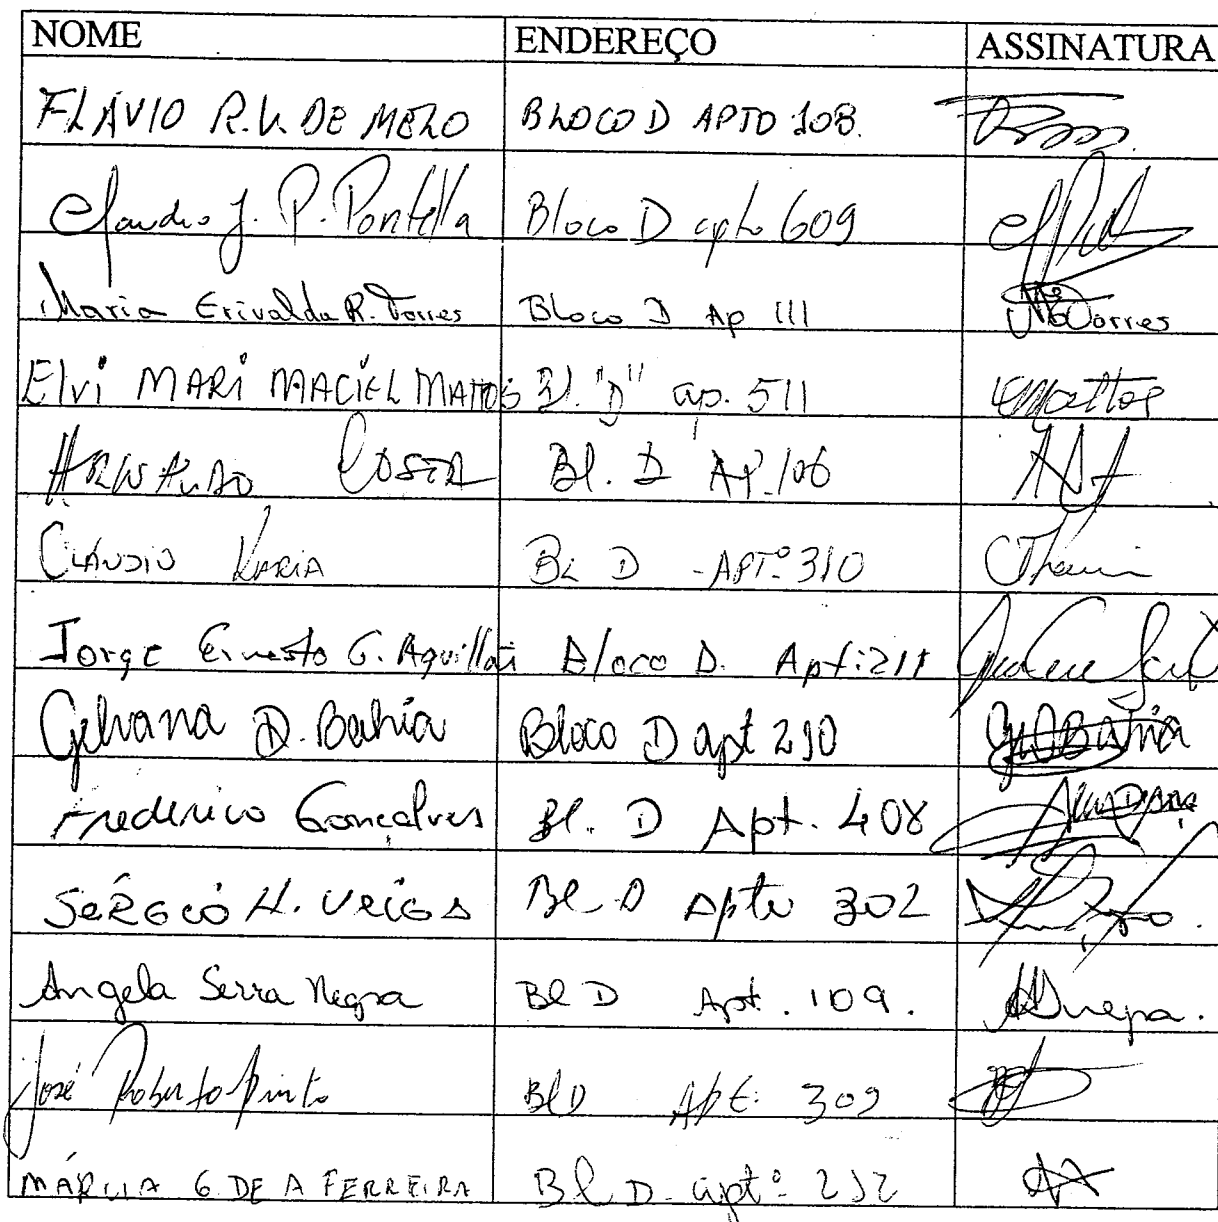 NOME ENDEREÇO ASSINATURA
FLÁVIO R.V. DE MELO BLOCO D APTO 108.
Claudio J. P. Pontella Bloco D apto 609
Maria Erivalda R. Torres Bloco D Ap 111 Mª Torres
Elvi MARI MACIEL MATTOS Bl. "D" ap. 511 EMattos
COSTA Bl. D AP. 106
CLÁUDIO Bl D - APTº 310
Jorge Ernesto G. Bloco D. Apt: 211
Gilvana D. Bahia Bloco D apt 210 Bahia
Frederico Gonçalves Bl. D Apt. 408
SÉRGIO H. VEIGA Bl D Apto 302
Angela Serra Negra Bl D Apt. 109.
José Roberto Pinto Bl D Apt: 309
MÁRCIA G DE A FERREIRA Bl D aptº 212